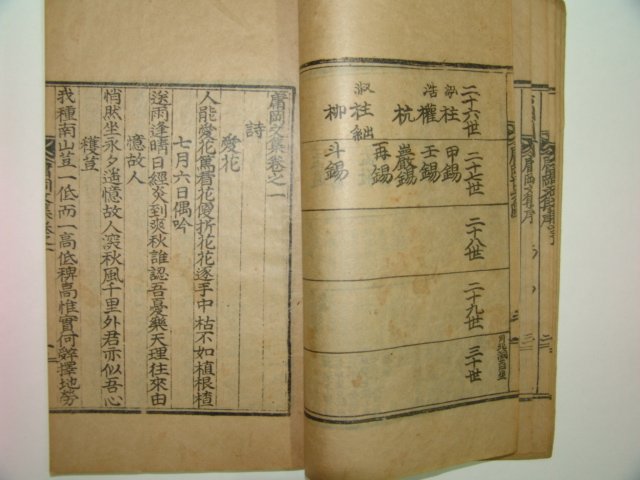 二十六世
二十七世
二十八世
二十九世
三十世
柱
浩權
杭
淑柱
柳
甲錫
壬錫
嚴錫
再錫
斗錫
庸岡文集卷之一
詩
愛花
人能愛花篤看花復折花花逐手中枯不如植根植
七月六日偶吟
送雨逢晴日經炎到爽秋誰認吾憂樂天理往來由
憶故人
悄然坐永夕遙憶故人深秋風千里外君亦似吾心
穫荳
我種南山荳一低而一高低稗高惟實何辭擇地勞